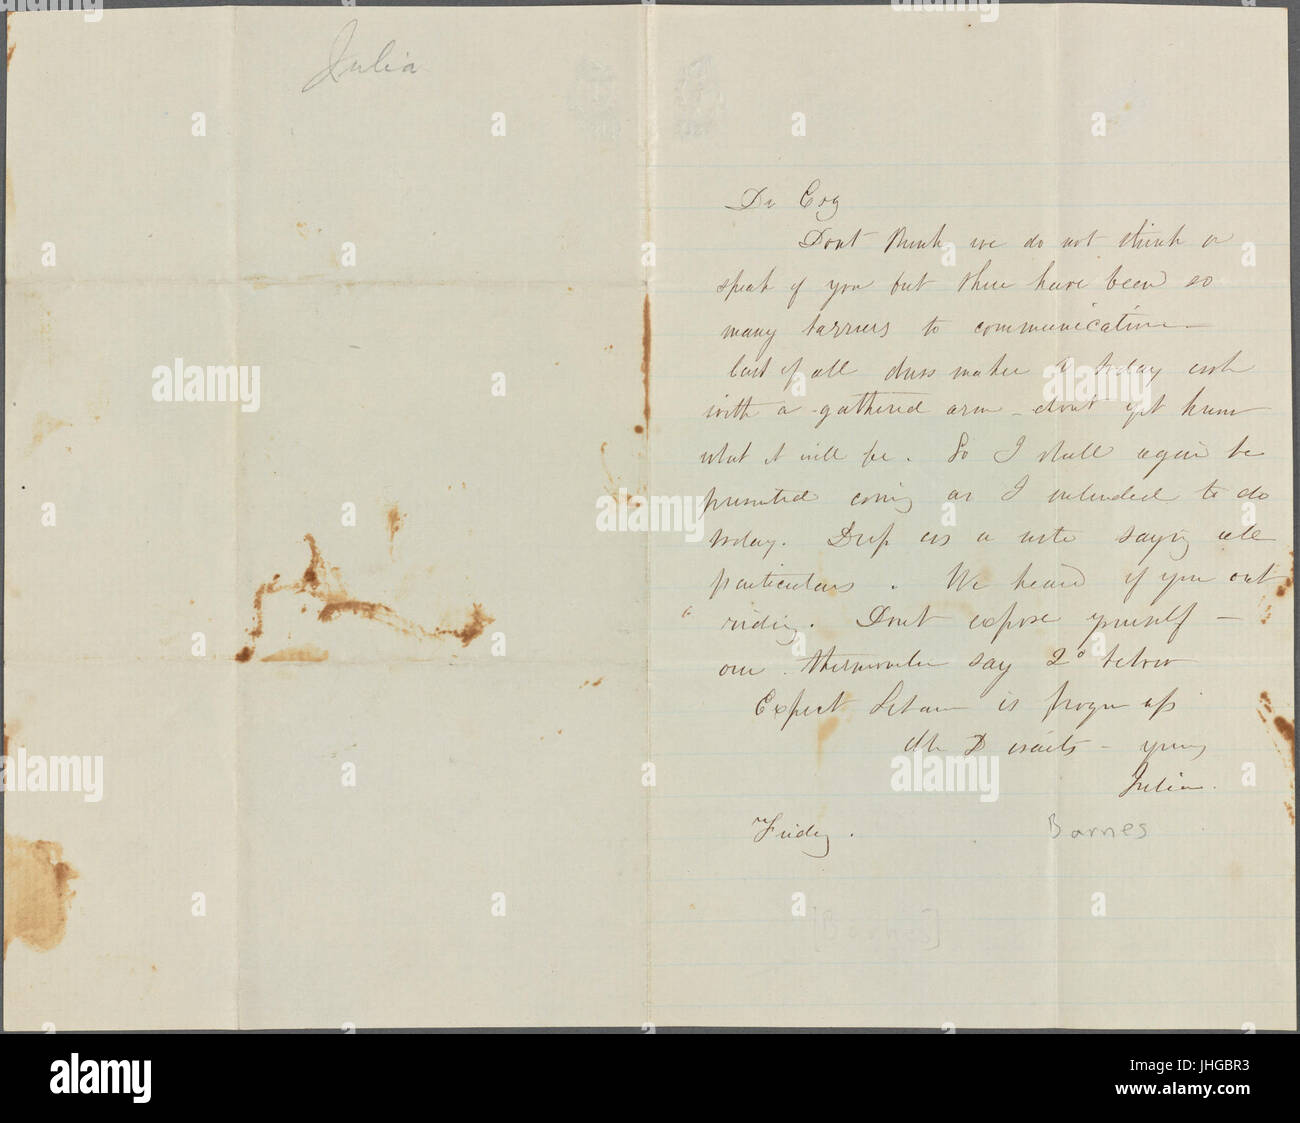 Julia
Dont think we do not think or
speak of you but there have been so
many barriers to communication –
last of all dress maker today
with a gathered arm – dont yet know
what it will be. So I shall again be
prevented coming as I intended to do
today. Drop us a note saying all
particulars. We heard of you out
riding. Dont expose yourself –
our thermometer say 2° below
Expect is frozen up
waits – yours
Julia.
Friday.
Barnes
[Barnes]
alamy
a
alamy
JHGBR3
www.alamy.com